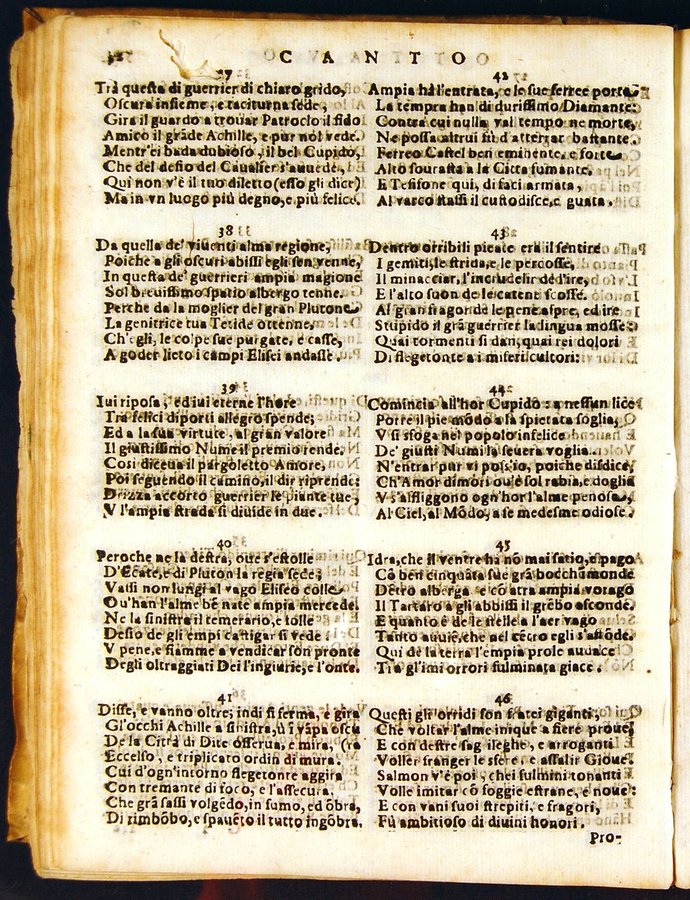 CANTO
37
Trà questa di guerrier di chiaro grido,
Oscura insieme, e taciturna sede,
Gira il guardo a trouar Patroclo il fido
Amico il grãde Achille, e pur nol vede.
Mentr'ei bada dubioso, il bel Cupido,
Che del desio del Caualier s'auuede,
Qui non v'è il tuo diletto (esso gli dice)
Ma in vn luogo più degno, e più felice.
38
Da quella de' viuenti alma regione,
Poiche a gli oscuri abissi egli sen venne,
In questa de' guerrieri ampia magione
Sol breuissimo spatio albergo tenne.
Perche da la moglier del gran Plutone
La genitrice tua Tetide ottenne,
Ch'egli, le colpe sue purgate, e casse,
A goder lieto i campi Elisei andasse.
39
Iui riposa, ed iui eterne l'hore
Trà felici diporti allegro spende;
Ed a la sua virtute, al gran valore
Il giustissimo Nume il premio rende.
Cosi diceua il pargoletto Amore,
Poi seguendo il camino, il dir riprende:
Drizza accorto guerrier le piante tue,
V l'ampia strada si diuide in due.
40
Peroche ne la destra, oue s'estolle
D'Ecate, e di Pluton la regia sede;
Vassi non lungi al vago Eliseo colle
Ou'han l'alme bẽ nate ampia mercede.
Ne la sinistra il temerario, e folle
Desio de gli empi castigar si vede:
V pene, e fiamme a vendicar son pronte
Degli oltraggiati Dei l'ingiurie, e l'onte.
41
Disse, e vanno oltre; indi si ferma, e gira
Gl'occhi Achille a sinistra, ù i vápa oscu
De la Città di Dite osserua, e mira, (ra
Eccelso, e triplicato ordin di mura.
Cui d'ogn'intorno flegetonte aggira
Con tremante di foco, e l'assecura.
Che grã sassi volgẽdo, in fumo, ed õbra,
Di rimbõbo, e spauẽto il tutto ingõbra.
42
Ampia hà l'entrata, e le sue ferree porte
La tempra han di durissimo Diamante:
Contra cui nulla val tempo ne morte,
Ne possa altrui fù d'atterrar bastante.
Ferreo Castel ben eminente, e forte
Alto sourasta a la Città fumante.
E Tesifone qui, di faci armata,
Al varco stassi il custodisce, e guata.
43
Dentro orribili pieate era il sentire
I gemiti, le strida, e le percosse,
Il minacciar, l'incrudelir de l'ire,
E l'alto suon de le catene scosse.
Al gran fragor de le pene aspre, ed ire
Stupido il grã guerrier la lingua mosse:
Quai tormenti si dan, quai rei dolori
Di flegetonte a i miseri cultori:
44
Comincia all'hor Cupido: a nessun lice
Porre il pie mõdo a la spietata soglia,
V si sfoga nel popolo infelice
De' giusti Numi la seuera voglia.
N'entrar pur vi poss'io, poiche disdice,
Ch'Amor dimori ou'è sol rabia, e doglia
V s'affliggono ogn'hor l'alme penose,
Al Ciel, al Mõdo, a se medesme odiose.
45
Idra, che il ventre hà nõ mai satio, e pago
Cõ ben cinquãta sue grã bocch'immonde
Dẽtro alberga e cõ atra ampia vorago
Il Tartaro a gli abbissi il grẽbo asconde.
E quanto è de le stelle a l'aer vago
Tanto auuiẽ, che nel cẽtro egli s'affõde.
Qui de la terra l'empia prole audace
Trà gl'imi orrori fulminata giace.
46
Questi gli orridi son fratei giganti,
Che voltar l'alme inique a fiere proue;
E con destre sagrileghe, e arroganti
Voller franger le sfere, e assalir Gioue.
Salmon v'è poi, che i fulmini tonanti
Volle imitar cõ foggie estrane, e noue:
E con vani suoi strepiti, e fragori,
Fù ambitioso di diuini honori.
Pro-